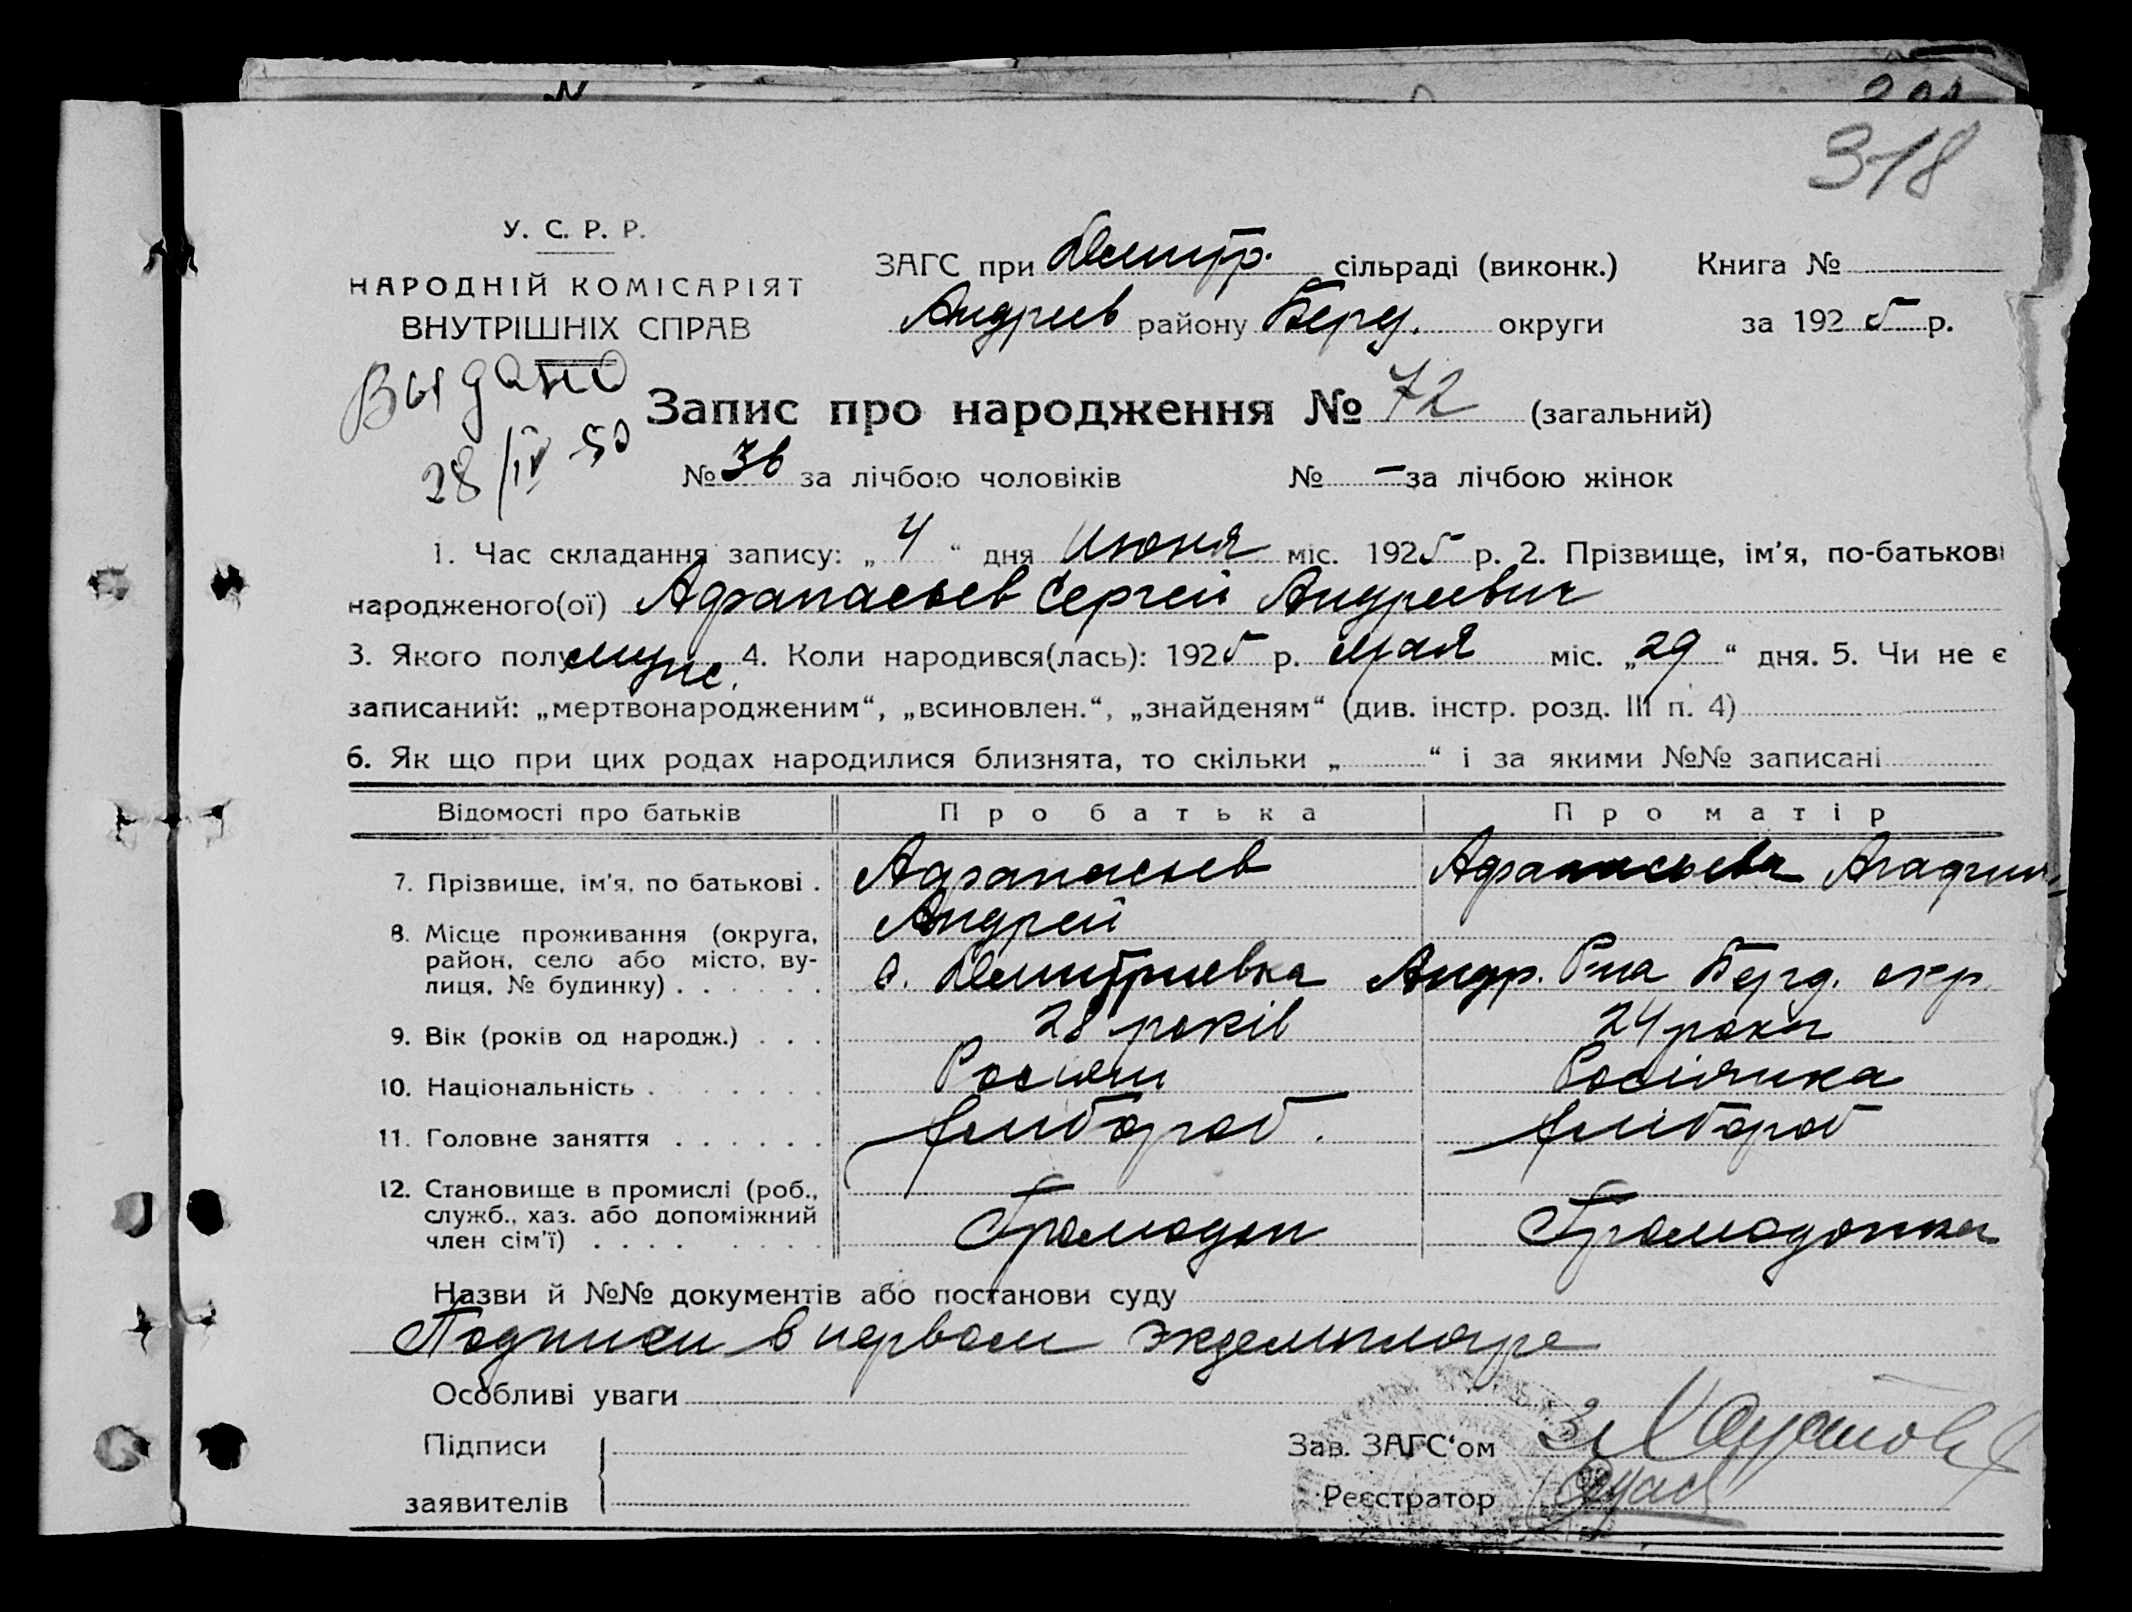 318
У. С. Р. Р.
НАРОДНІЙ КОМІСАРІЯТ
ВНУТРІШНІХ СПРАВ
ЗАГС при Дмитр. сільраді (виконк.) Книга №
Андреев району Берд. округи за 1925 р.
Выдано
28/IV-50
Запис про народження № 72 (загальний)
№ 36 за лічбою чоловіків № – за лічбою жінок
1. Час складання запису: „4“ дня Июня міс. 1925 р. 2. Прізвище, ім'я, по-батькові
народженого(ої) Афанасьев Сергей Андреевич
3. Якого полу муж. 4. Коли народився(лась): 1925 р. мая міс. „29“ дня. 5. Чи не є
записаний: „мертвонародженим“, „всиновлен.“, „знайденям“ (див. інстр. розд. III п. 4)
6. Як що при цих родах народилися близнята, то скільки „ “ і за якими №№ записані
Відомості про батьків Про батька Про матір
7. Прізвище, ім'я, по батькові . Афанасьев Афанасьева
Андрей
8. Місце проживання (округа,
район, село або місто, ву-
лиця, № будинку) . . . . . . с. Дмитриевка Андр. Р-на Берд. окр.
9. Вік (років од народж.) . . . 28 років 24 роки
10. Національність . . . . . . Росіян Росіянка
11. Головне заняття . . . . . . хлібороб. хлібороб
12. Становище в промислі (роб.,
служб., хаз. або допоміжний
член сім'ї) . . . . . . . . Громадян Громадянка
Назви й №№ документів або постанови суду
Подписи в первом экземпляре
Особливі уваги
Підписи
заявителів
Зав. ЗАГС'ом
Реєстратор